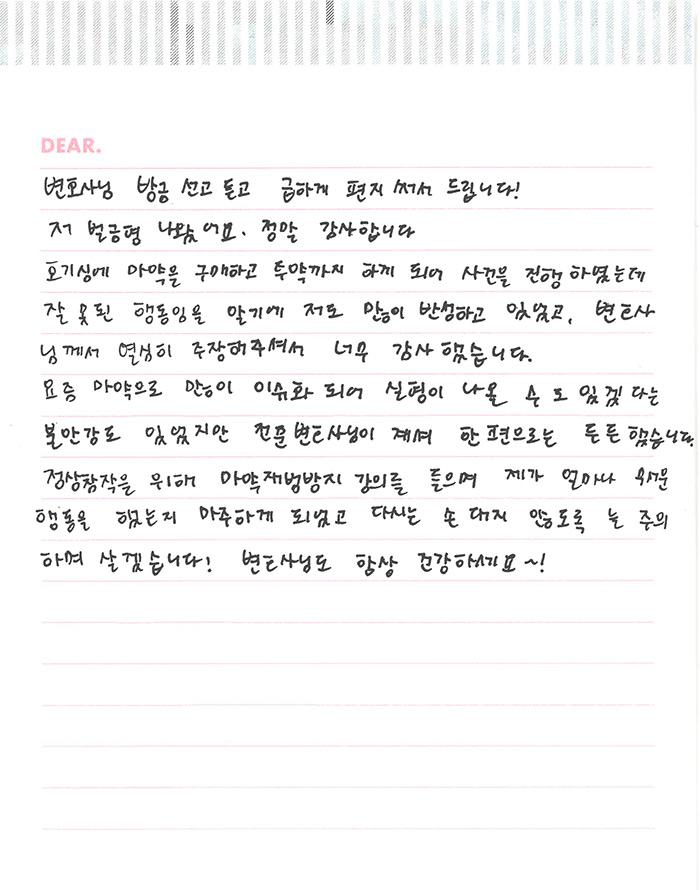 DEAR.
변호사님 방금 선고 듣고 급하게 편지 써서 드립니다!
저 벌금형 나왔어요. 정말 감사합니다
호기심에 마약을 구매하고 투약까지 하게 되어 사건을 진행하였는데
잘못된 행동임을 알기에 저도 많이 반성하고 있었고, 변호사
님께서 열심히 주장해주셔서 너무 감사했습니다.
요즘 마약으로 많이 이슈화 되어 실형이 나올 수도 있겠다는
불안감도 있었지만 전문변호사님이 계셔 한편으로는 든든했습니다.
정상참작을 위해 마약재범방지 강의를 들으며 제가 얼마나
행동을 했는지 마주하게 되었고 다시는 손 대지 않도록 늘 주의
하며 살겠습니다! 변호사님도 항상 건강하세요~!